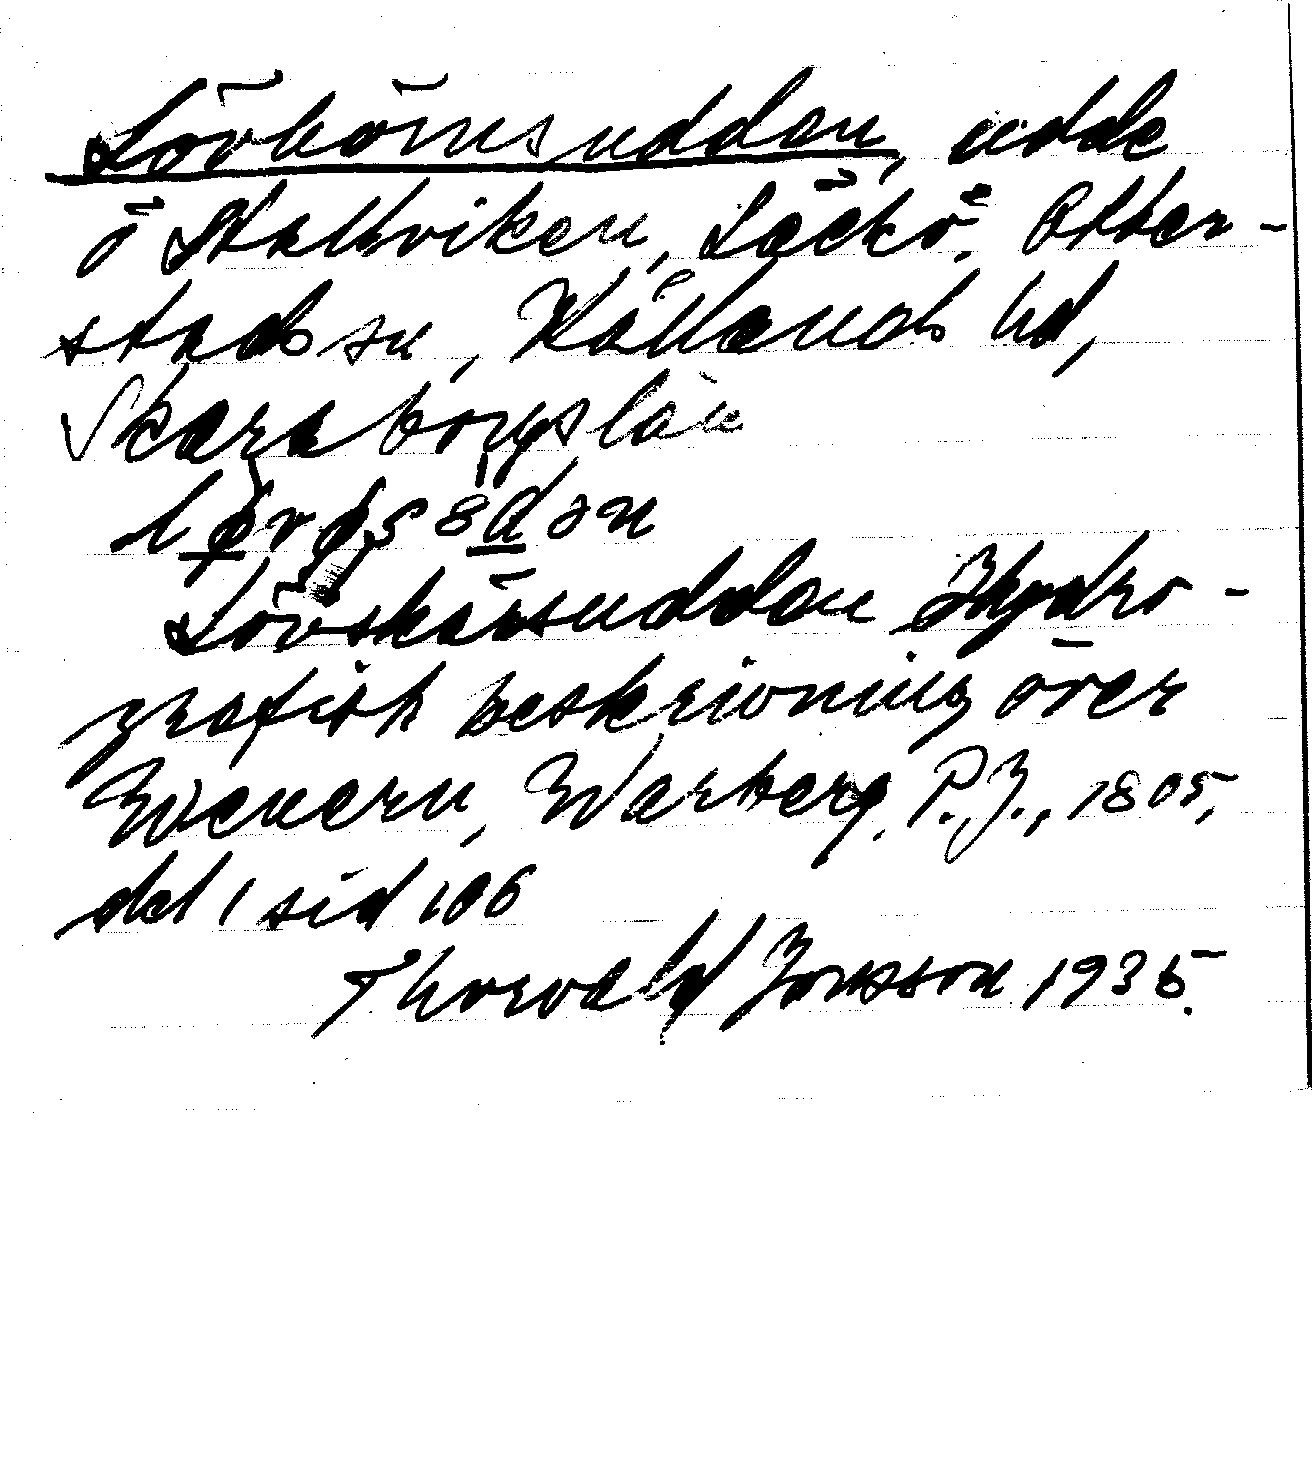 Lövhönsuddan, udde
ö Stallviken, Läckö, Otten-
stads sn, Kållands hd,
Skaraborgs län
Lövskärsuddan Hydro-
grafisk beskrivning över
Wenern, Warberg, P. J., 1805,
del 1 sid 106
Thorvald Jonsson 1935.